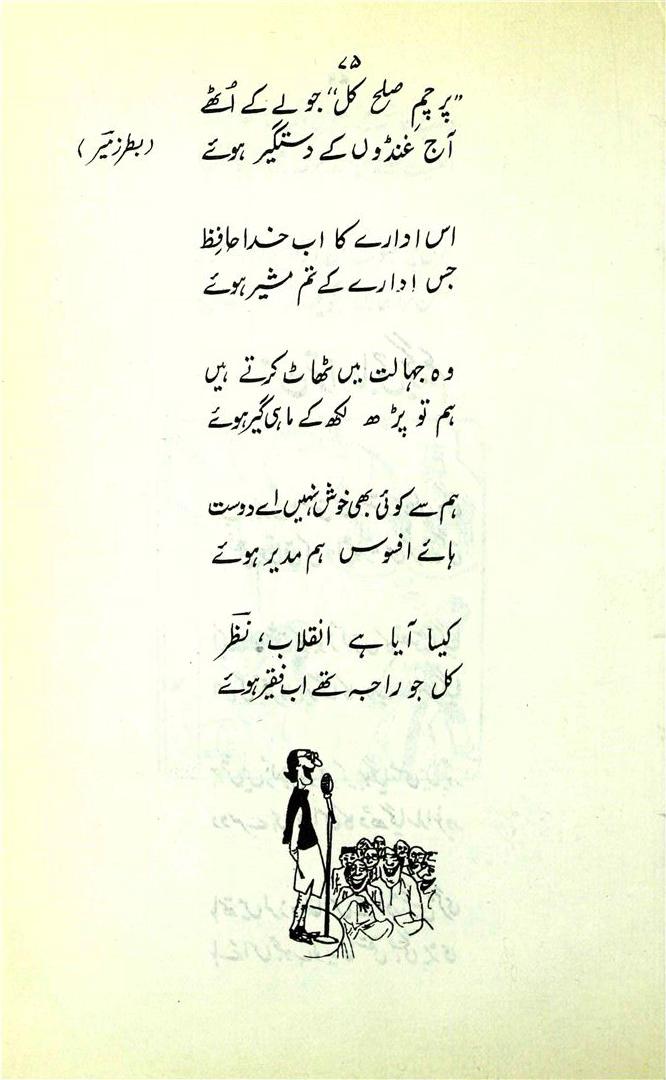 ۷۵
"پرچمِ صلح کل" جو لے کے اُٹھے
آج غنڈوں کے دستگیر ہوئے (بطرز میرؔ)
اس ادارے کا اب خدا حافِظ
جس اِدارے کے تم مشیر ہوئے
وہ جہالت میں ٹھاٹ کرتے ہیں
ہم تو پڑھ لکھ کے ماہی گیر ہوئے
ہم سے کوئی بھی خوش نہیں اے دوست
ہائے افسوس ہم مدیر ہوئے
کیسا آیا ہے انقلاب، نظرؔ
کل جو راجہ تھے اب فقیر ہوئے